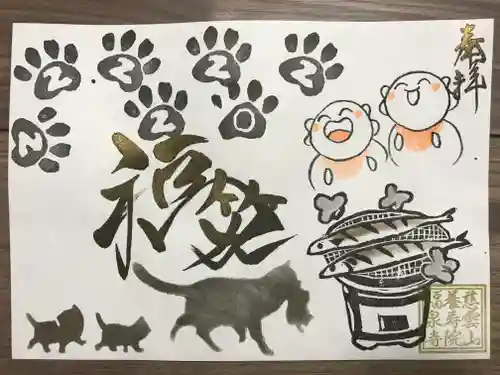 奉拝
2 2 2 2
2 2 0
福笑
慈雲山
養寿院
高泉寺